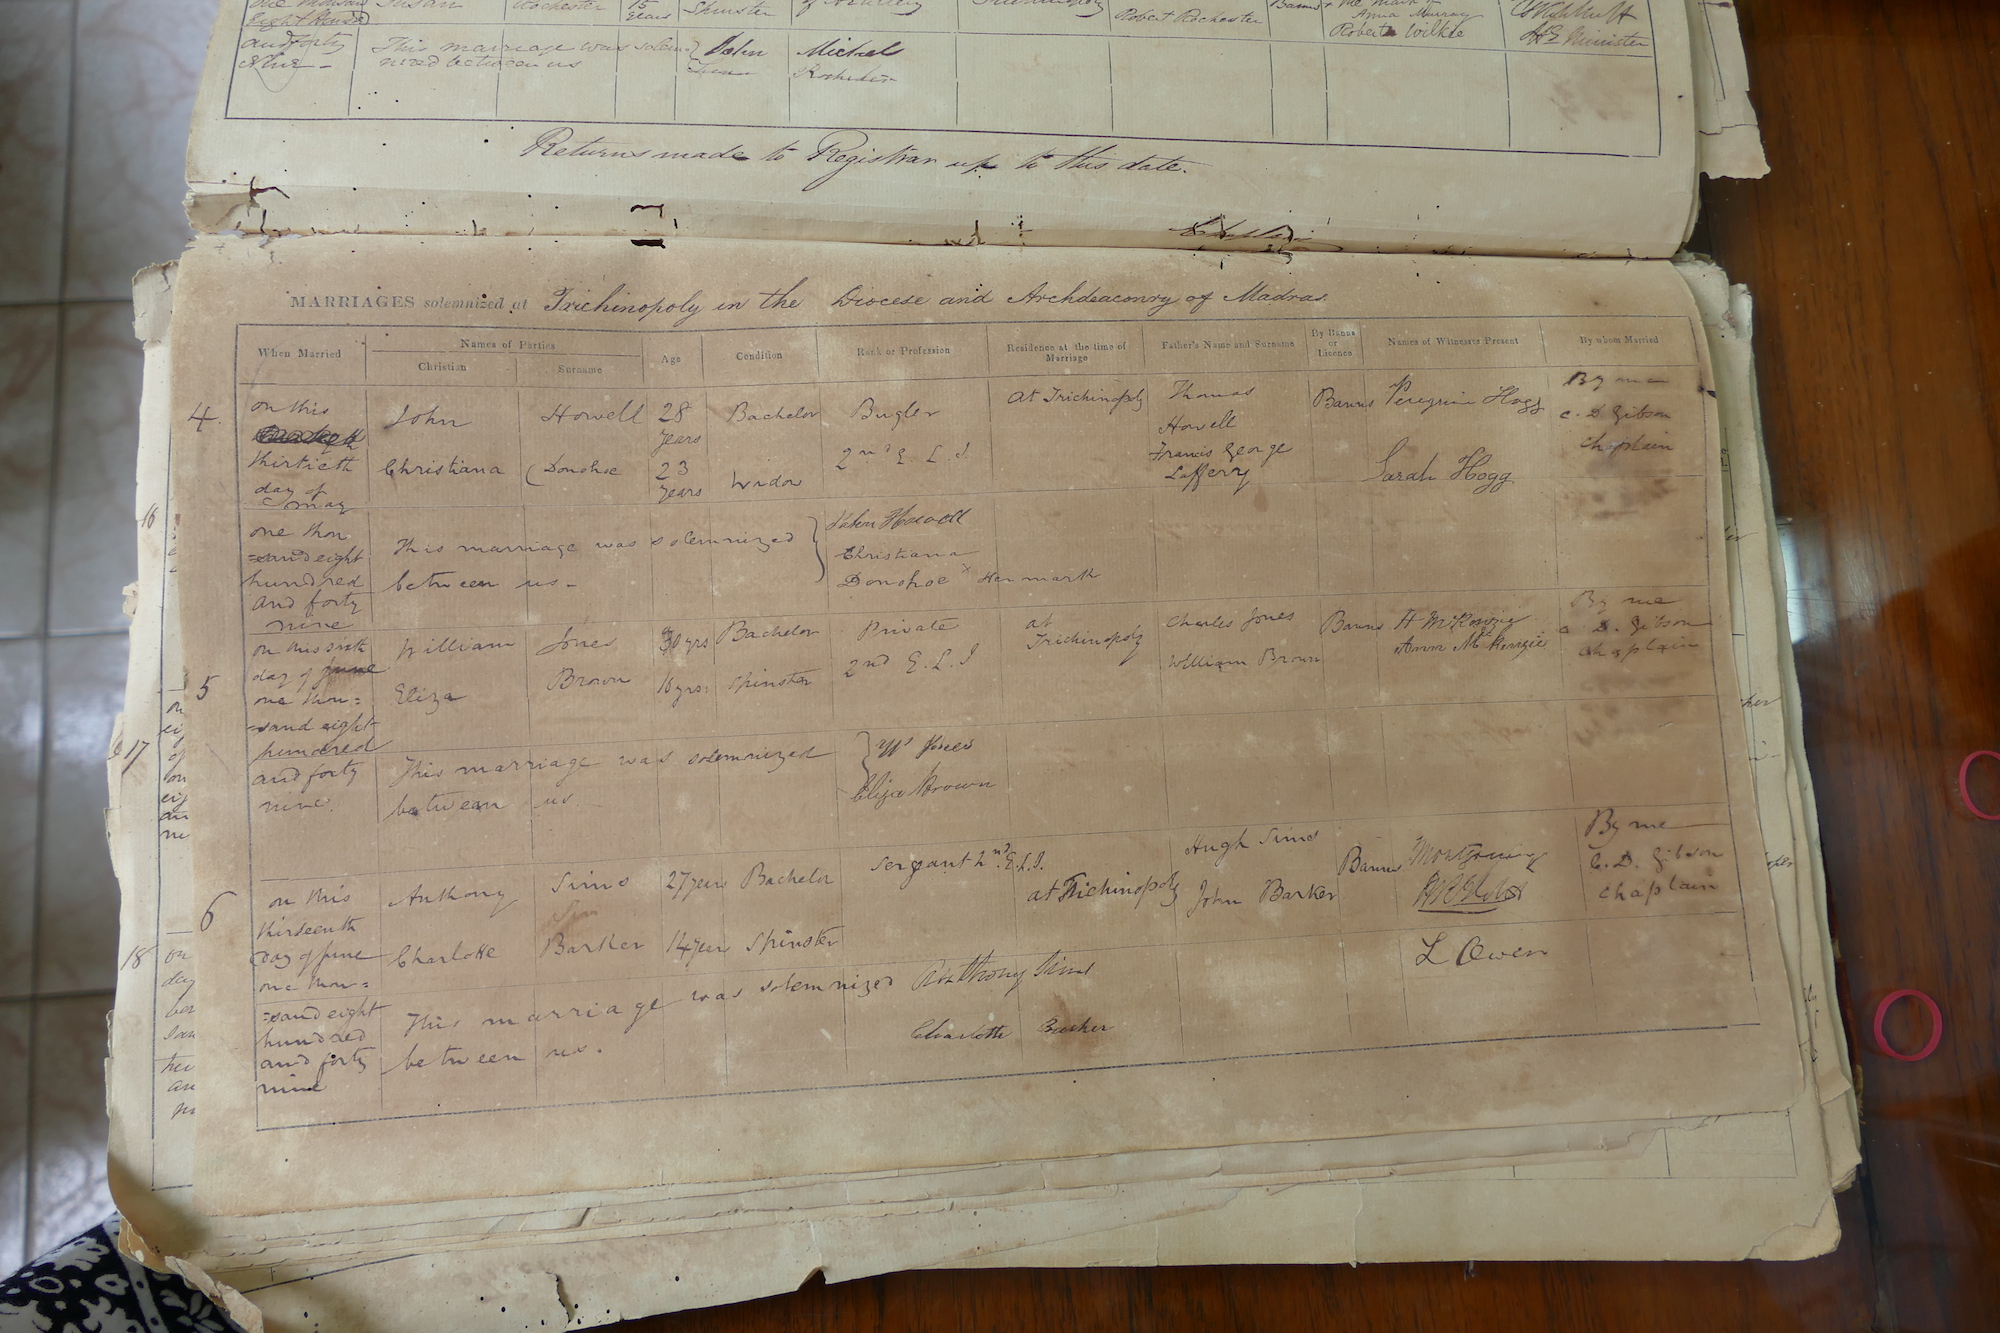 Susan Rochester 15 years Spinster Trichinopoly Robert Rochester Banns Anna Murray
Eight Hund Robert Wilkie Minister
and forty This marriage was solem John Michael
nine - nized between us Rochester
Returns made to Registrar up to this date.
MARRIAGES solemnized at Trichinopoly in the Diocese and Archdeaconry of Madras.
When Married Names of Parties Age Condition Rank or Profession Residence at the time of Marriage Father's Name and Surname By Banns or Licence Names of Witnesses Present By whom Married
Christian Surname
4. on this John Howell 28 years Bachelor Bugler at Trichinopoly Thomas Howell Banns Peregrine Hogg By me
C. D. Gibson
Chaplain
thirtieth Christiana Donohoe 23 years Widow 2nd E. L. I Francis George Lafferry Sarah Hogg
day of
May
one thou
=sand eight This marriage was solemnized John Howell
hundred between us - Christiana
and forty Donohoe x Her mark
nine
5 on this sixth William Jones 30 yrs Bachelor Private at Trichinopoly Charles Jones Banns H McKenzie By me
day of June Ann McKenzie C. D. Gibson
one thou= Eliza Brown 16 yrs: Spinster 2nd E. L. I William Brown Chaplain
=sand eight
hundred This marriage was solemnized Wm Jones
and forty between us Eliza Brown
nine.
6 on this Anthony Sims 27 years Bachelor Sergeant 2nd E. L. I. at Trichinopoly Hugh Sims Banns Montgomery By me
thirteenth C. D. Gibson
day of June Charlotte Barker 14 years Spinster John Barker Chaplain
one thou= L Owen
=sand eight This marriage was solemnized Anthony Sims
hundred between us. Charlotte Barker
and forty
nine
16
17
18